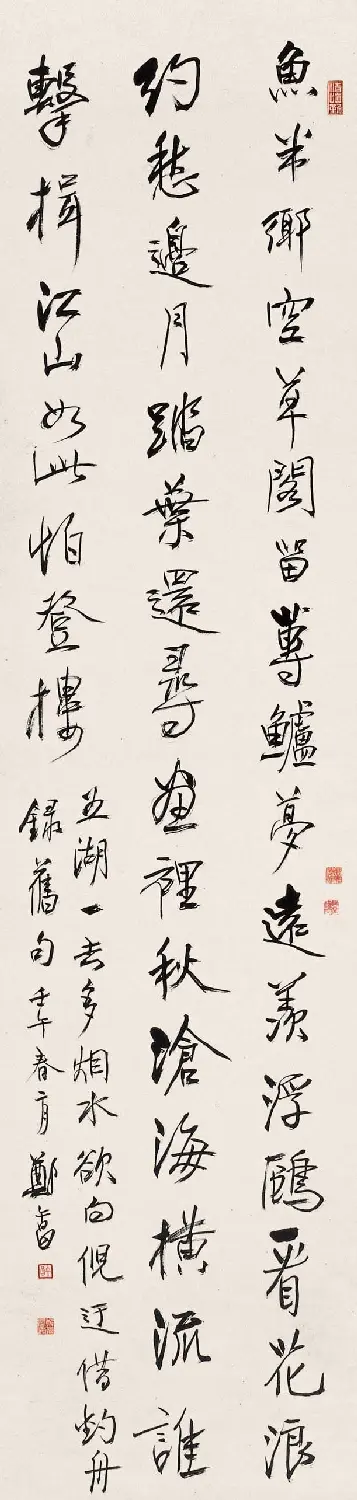 魚米鄉空草閣留蓴鱸夢遠羨浮鷗看花浪
約愁邊月踏葉還尋畫裡秋滄海橫流誰
擊楫江山如此怕登樓
五湖一去多烟水欲向倪迂借釣舟
錄舊句壬午春月鄭